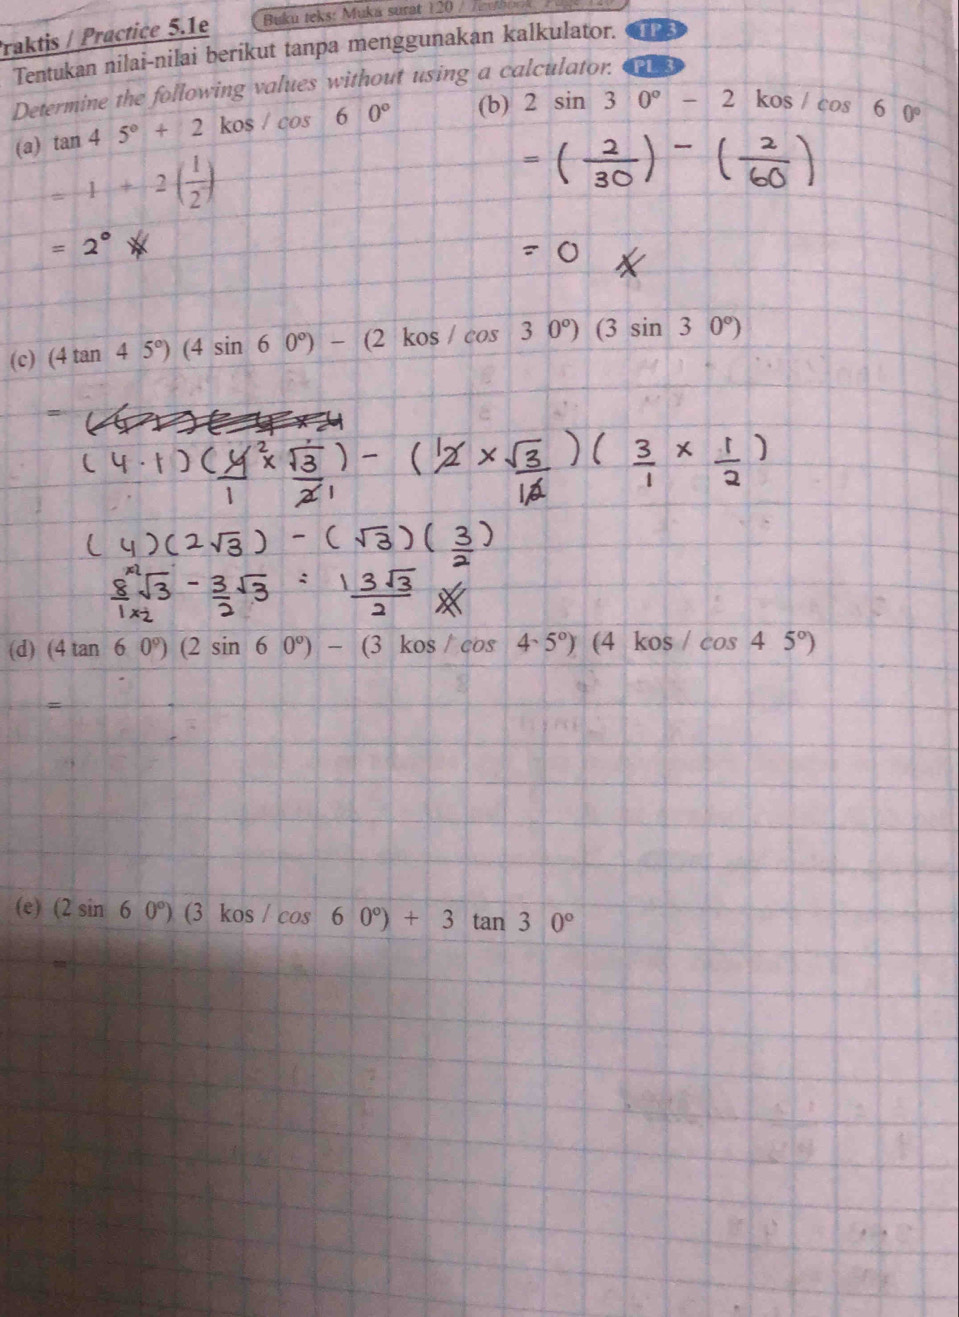 Praktis / Practice 5.1e
Buku teks: Muka surat 120 / Textbook: Page 120
Tentukan nilai-nilai berikut tanpa menggunakan kalkulator. TP 3
Determine the following values without using a calculator. PL 3
(a) tan 4 5° + 2 kos / cos 6 0°
= 1 + 2 (1/2)
= 2°
(b) 2 sin 3 0° − 2 kos / cos 6 0°
= (2/30) − (2/60)
= 0
(c) (4 tan 4 5°) (4 sin 6 0°) − (2 kos / cos 3 0°) (3 sin 3 0°)
=
(4 · 1) (4/1 2 × √3/2 1) − (1 2 × √3/2 1) (3/1 × 1/2)
(4)(2√3) − (√3)(3/2)
8×2/1×2 √3 − 3/2 √3 = 13√3/2
(d) (4 tan 6 0°) (2 sin 6 0°) − (3 kos / cos 4 5°) (4 kos / cos 4 5°)
=
(e) (2 sin 6 0°) (3 kos / cos 6 0°) + 3 tan 3 0°
=